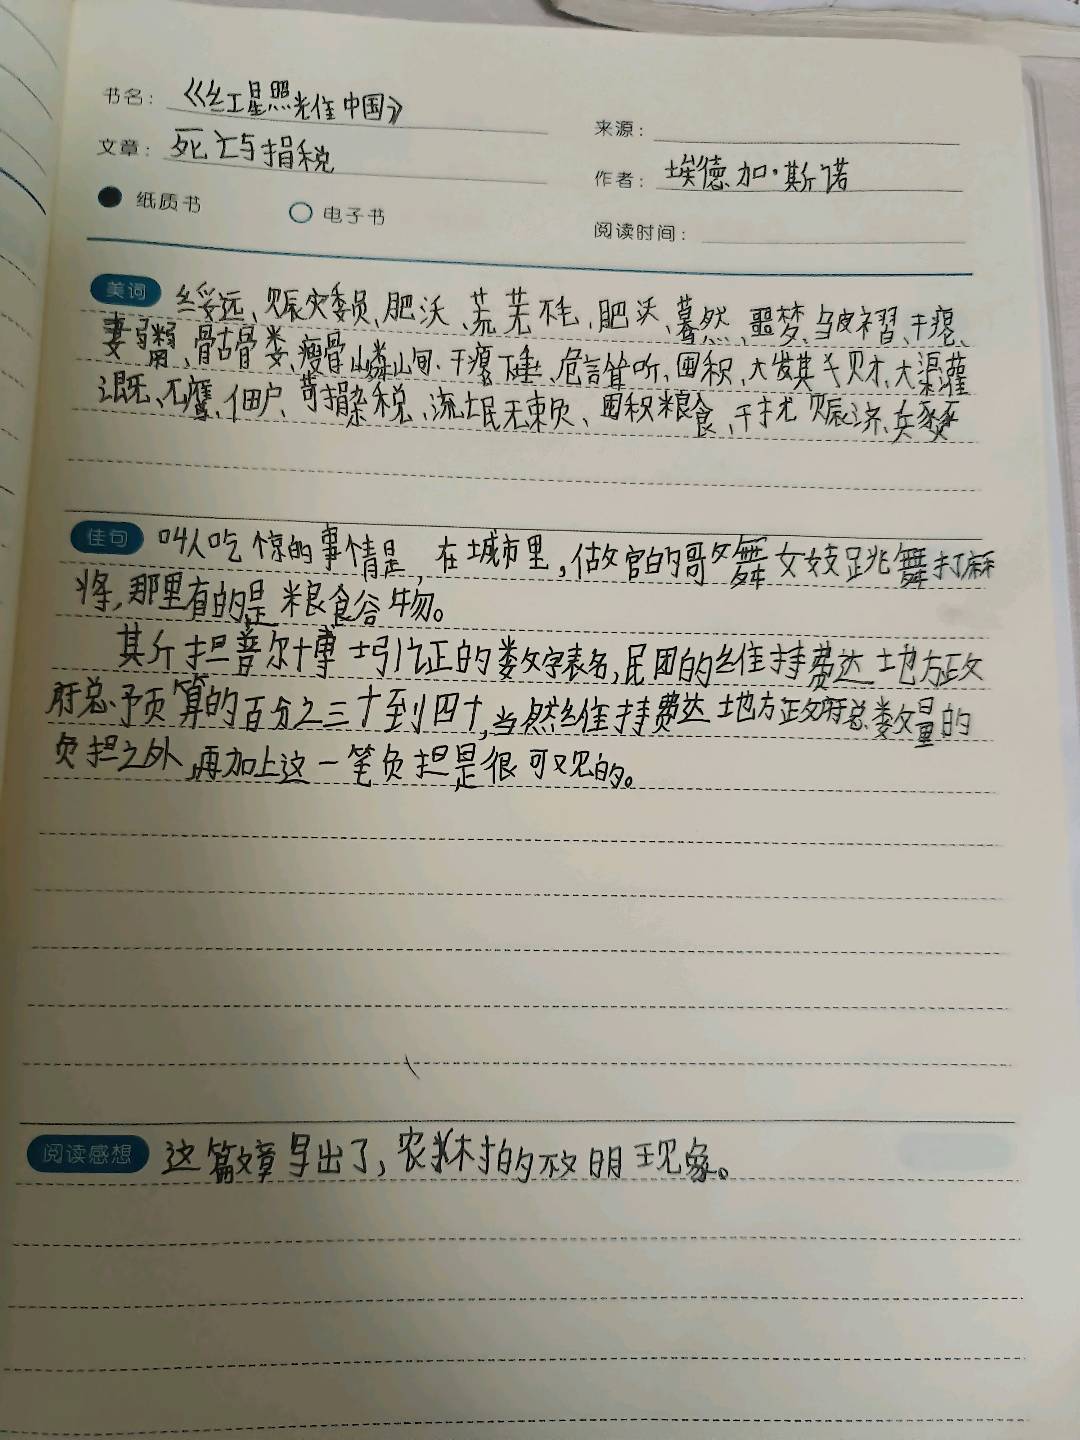 书名： 《红星照耀中国》
来源：
文章： 死亡与捐税
作者： 埃德加·斯诺
纸质书 电子书
阅读时间：
美词 绥远、赈灾委员、肥沃、荒芜不毛、肥沃、蓦然、噩梦、皱褶、干瘪、
骨瘦嶙峋、干瘪下垂、危言耸听、囤积、大发其财、大渠灌
溉、佃户、苛捐杂税、流氓无赖、囤积粮食、干扰赈济、
佳句 叫人吃惊的事情是，在城市里，做官的歌舞女妓跳舞打麻
将，那里有的是粮食谷物。
其斤担普尔博士引证的数字表名，民团的维持费达地方政
府总予页算的百分之三十到四十，当然维持费达地方政府总数量的
负担之外，再加上这一笔负担是很可观的。
阅读感想 这篇文章写出了，农村的不文明现象。